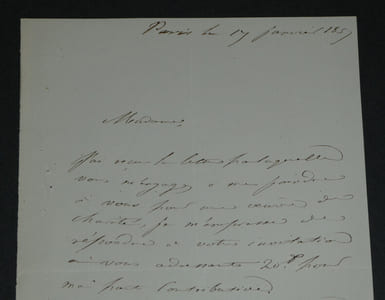 Paris le 17 janvier 185
Madame,
J'ai reçu la lettre par laquelle
vous m'engagez à me joindre
à vous pour une œuvre de
charité, je m'empresse de
répondre à votre invitation
en vous adressant 20 f. pour
ma part contributive.